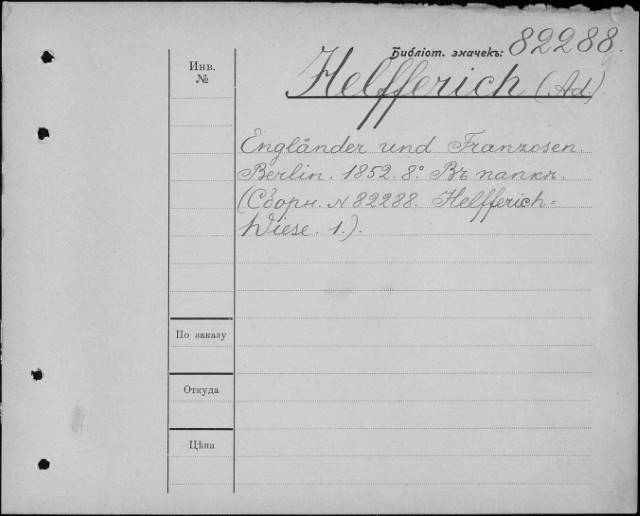 Библіот. значекъ: 82288.
Инв.
№
Helfferich (Ad.)
Engländer und Franzosen.
Berlin. 1852. 8° Въ папкѣ.
(Сборн. N 82288. Helfferich=
Wiese. 1.).
По заказу
Откуда
Цѣна